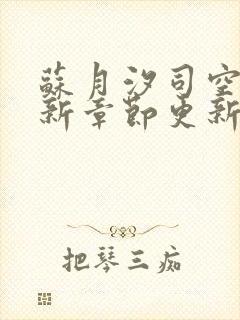 蘇月汐司空
新章節更新
把琴三痴